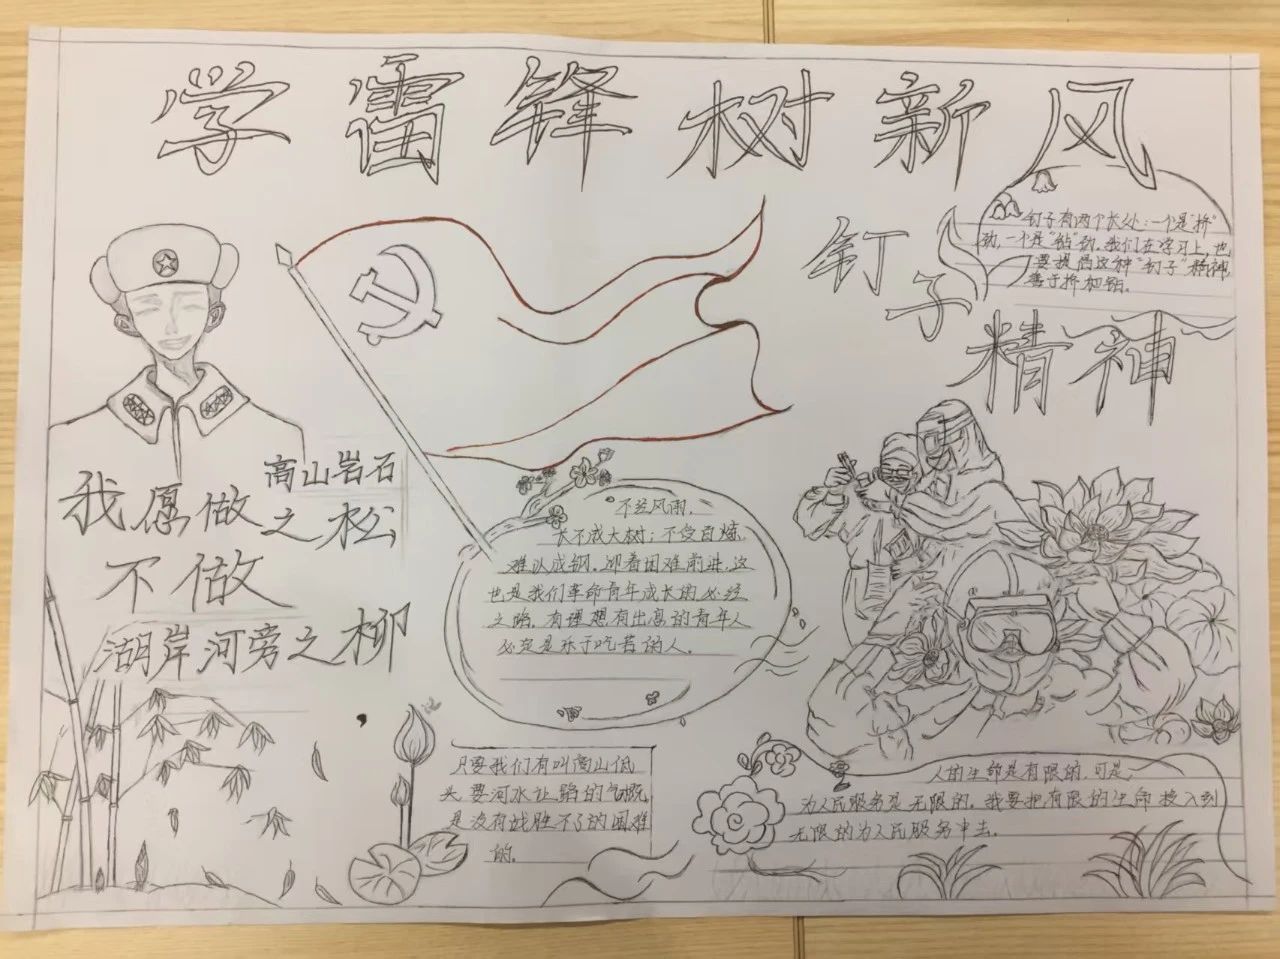 学雷锋树新风
钉子
精神
钉子有两个长处:一个是“挤”
劲,一个是“钻”劲。我们在学习上,也
要提倡这种“钉子”精神
善于挤和钻。
我愿做高山岩石
之松
不做
湖岸河旁之柳
不经风雨,
长不成大树;不受百炼
难以成钢。迎着困难前进,这
也是我们革命青年成长的必经
之路。有理想有出息的青年人
必定是乐于吃苦的人。
只要我们有叫高山低
头,要河水让路的气概,
是没有战胜不了的困难
的。
人的生命是有限的,可是,
为人民服务是无限的。我要把有限的生命投入到
无限的为人民服务中去。